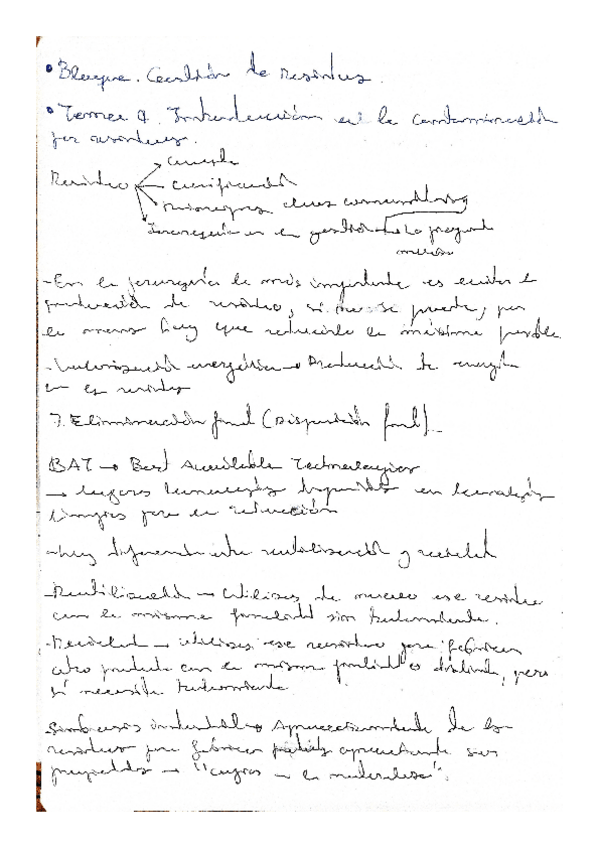 • Bloque. Gestión de Residuos.
• Tema 9. Introducción a la contaminación
por residuos.
Residuo
clasificación
Jerarquía en la gestión → La pregunta
- En la jerarquía lo más importante es evitar la
producción de residuo, si no se puede, por
lo menos hay que reducirlo lo máximo posible.
- Valorización energética → Producción de energía
con el residuo
7. Eliminación final (Disposición final).
BAT → Best Available Technologies
→ mejores tecnologías disponibles en tecnologías
limpias para la reducción
- Hay diferencia entre reutilización y reciclado
- Reutilización → Utilizas de nuevo ese residuo
con la misma función sin tratamiento.
- Reciclado → utilizas ese residuo para fabricar
otro producto con la misma función o distinta, pero
sí necesita tratamiento
Simbiosis industrial → Aprovechamiento de los
residuos para fabricar aprovechando sus
propiedades → " en la naturaleza".